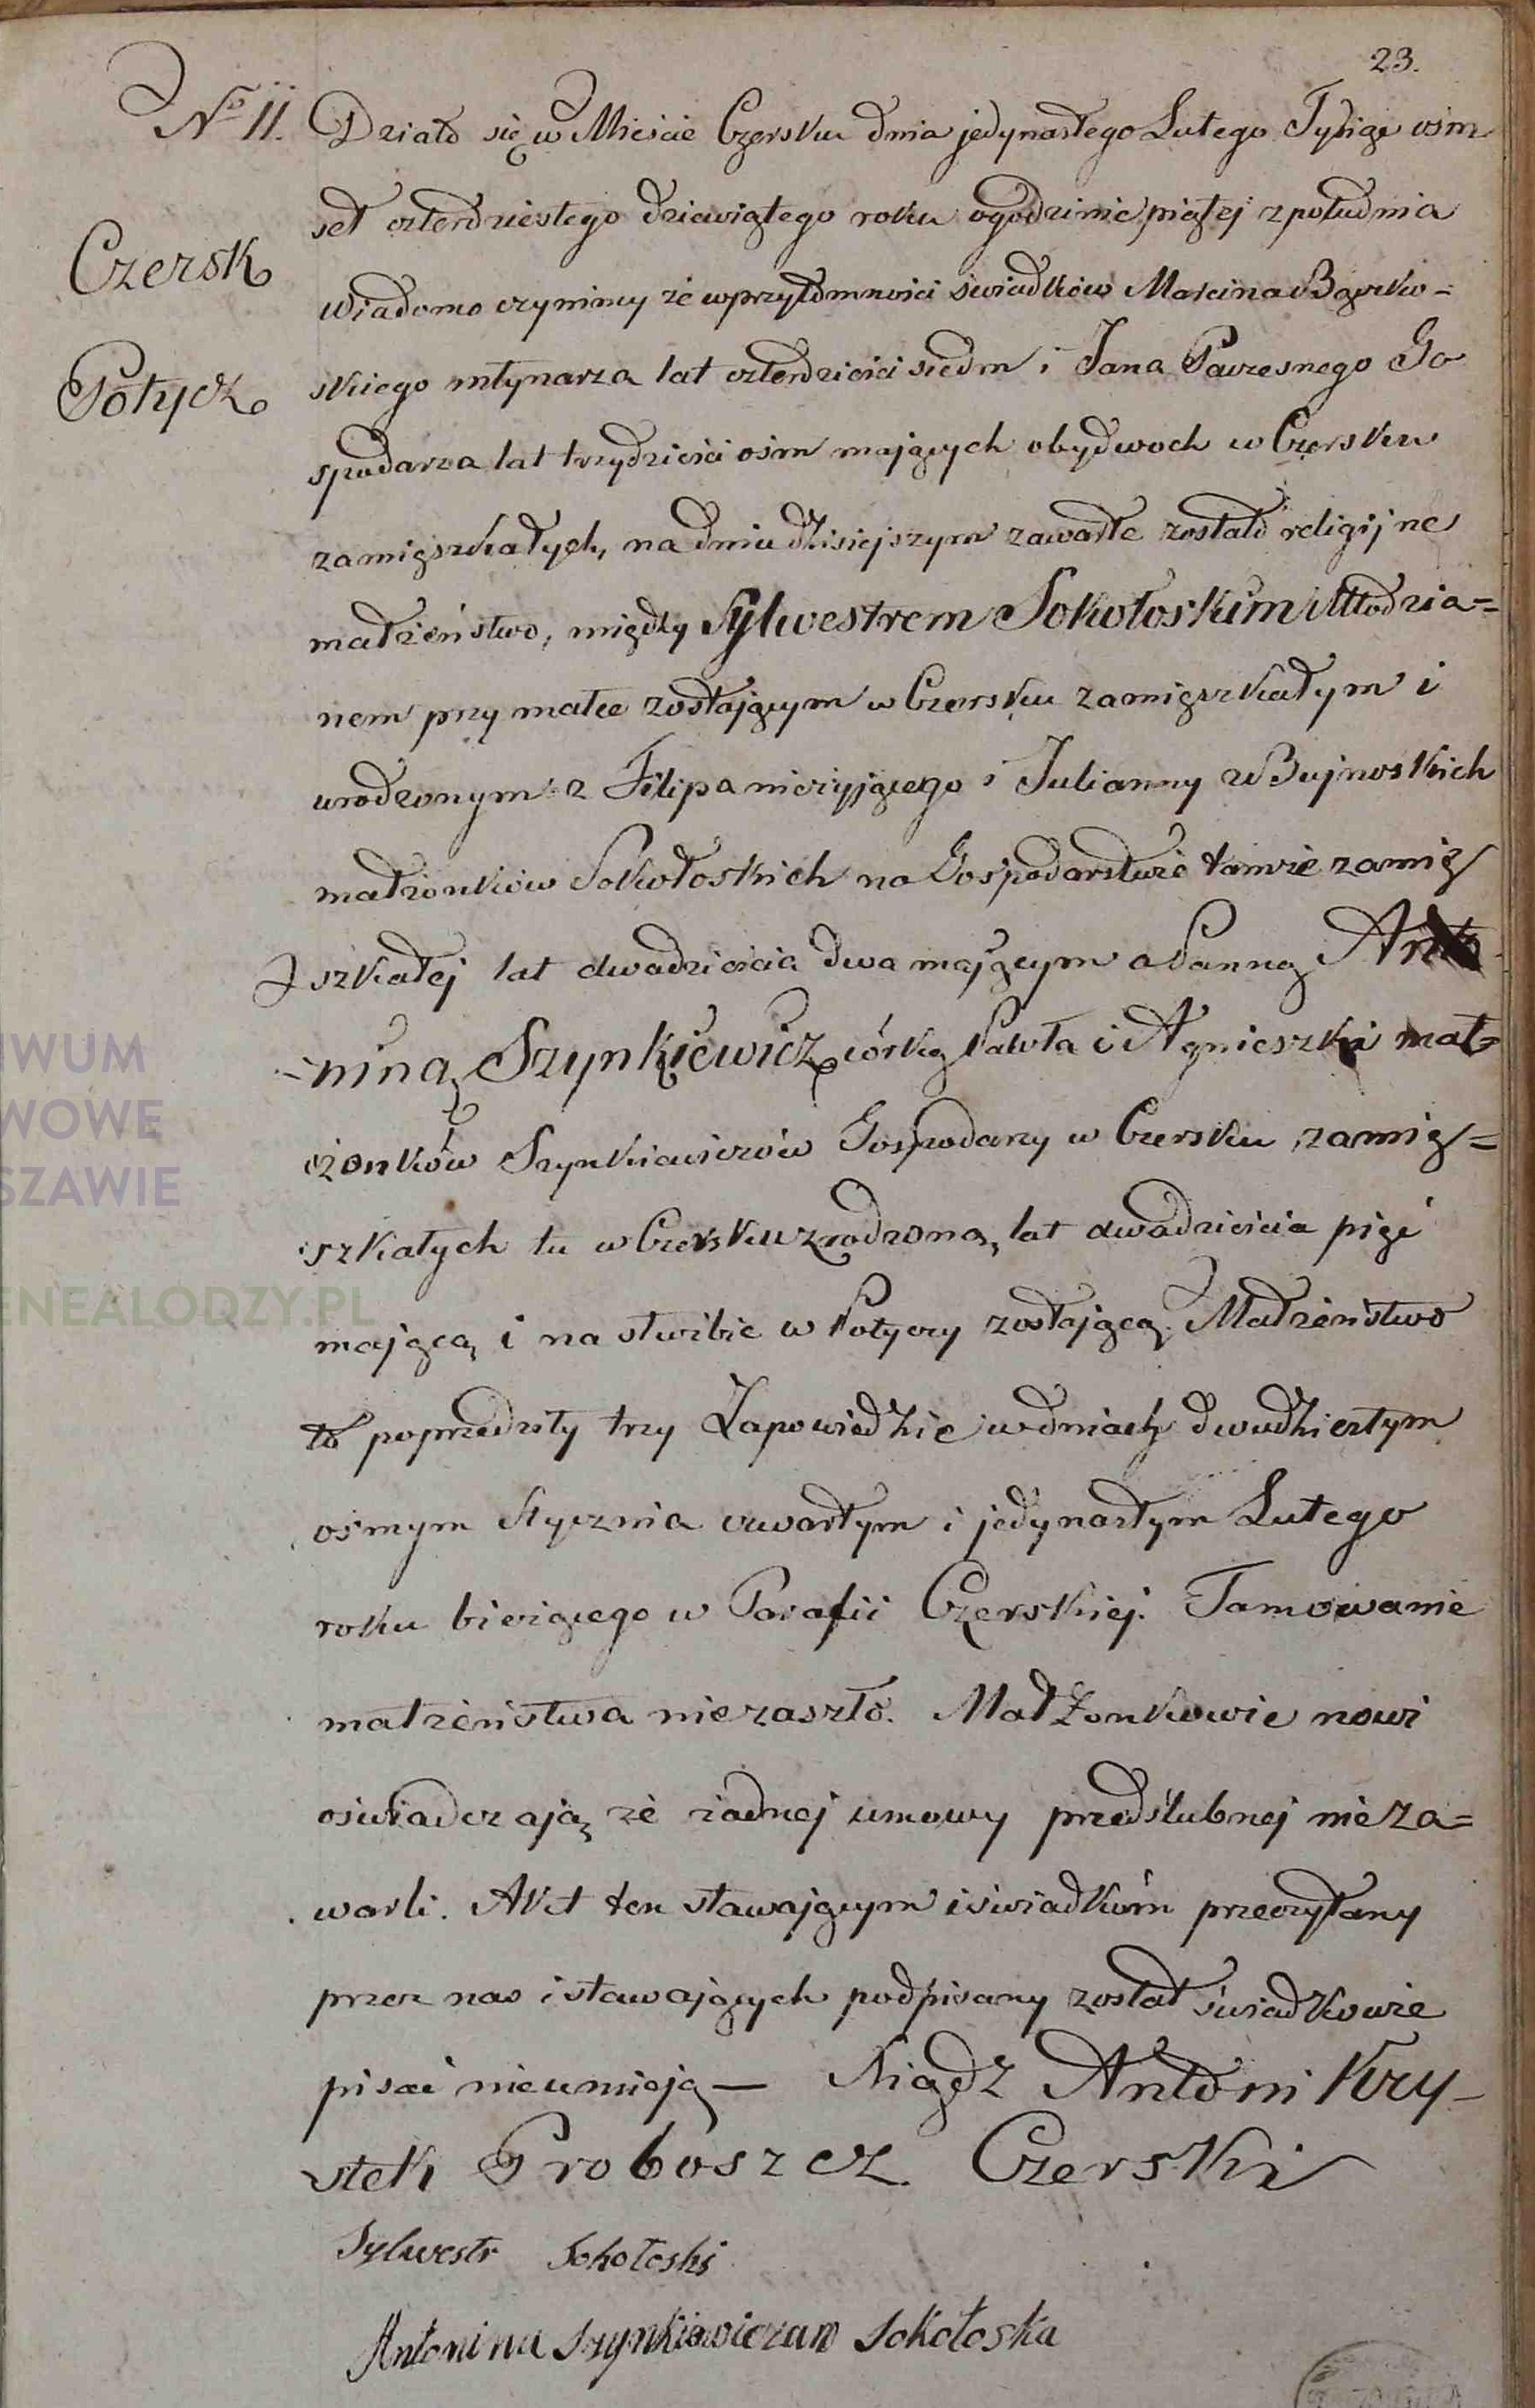 23.
No 11. Działo się w Mieście Czersku dnia jedynastego Lutego Tysiąc ośm
set czterdziestego dziewiątego roku o godzinie piątej z południa
Czersk
wiadomo czynimy że w przytomności świadków Marcina
skiego młynarza lat czterdzieści siedm i Jana Go
Potycz
spodarza lat trzydzieści ośm mających obydwoch w Czersku
zamięszkałych, na dniu dzisiejszym zawarte zostało religijne
małżeństwo, między Sylwestrem Sokołoskim Młodzia=
nem przy matce zostającym w Czersku zamięszkałym i
urodzonym z Filipa nieżyjącego i Julianny z Bujnoskich
małżonków Sokołoskich na Gospodarstwie tamże zamię
szkałej lat dwadzieścia dwa mającym a Panną Anto
-niną Szynkiewicz córką Pawła i Agnieszki mał=
żonków Szynkiewiczów Gospodarzy w Czersku zamię=
szkałych tu w Czersku zrodzoną, lat dwadzieścia pięć
mającą i na służbie w Potyczy zostającą. Małżeństwo
to poprzedziły trzy Zapowiedzie w dniach dwudziestym
ósmym Stycznia czwartym i jedynastym Lutego
roku bieżącego w Parafii Czerskiej. Tamowanie
małżeństwa nie zaszło. Małżonkowie nowi
oświadczają że żadnej umowy przedślubnej nie za=
warli. Akt ten stawającym i świadkóm przeczytany
przez nas i stawających podpisany został świadkowie
pisać nieumieją — Xiądz Antoni Kry-
stek Proboszcz Czerski
Sylwestr Sokołoski
Antonina Szynkiewiczano Sokołoska
IWUM
WOWE
SZAWIE
ENEALODZY.PL